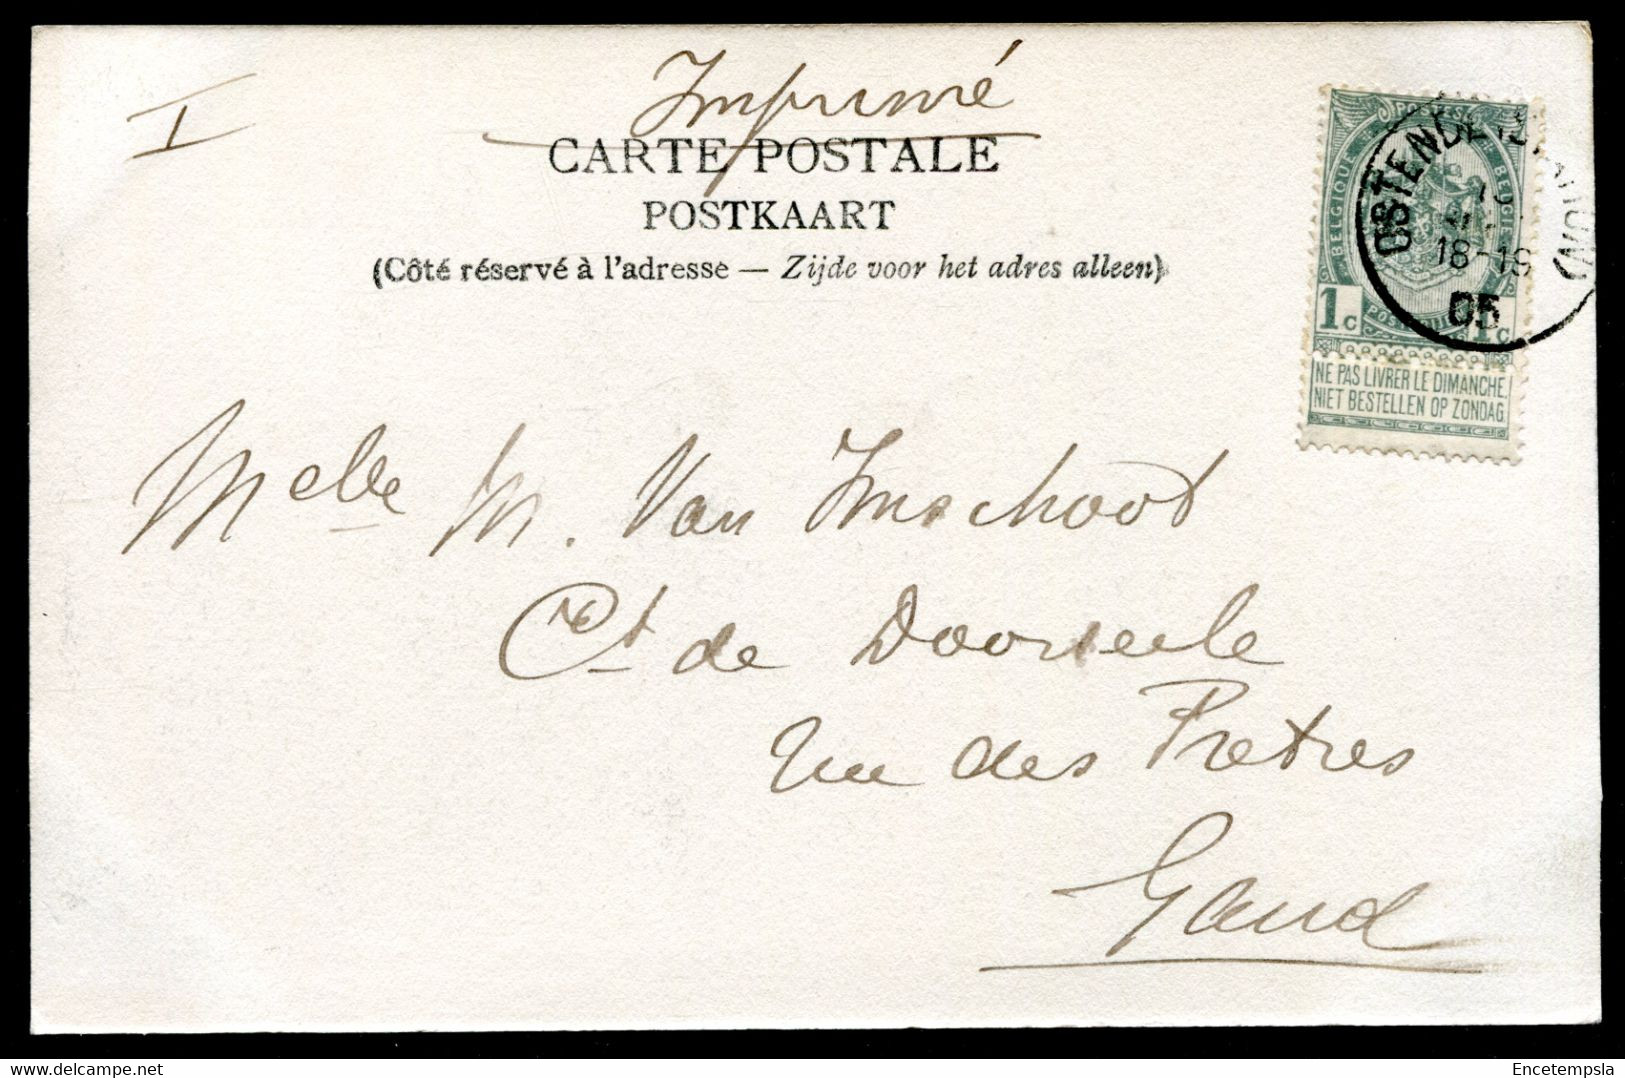 I
Imprimé
CARTE POSTALE
POSTKAART
(Côté réservé à l'adresse — Zijde voor het adres alleen)
POSTES
BELGIQUE
BELGIE
OSTENDE (STATION)
19
18-19
05
1c 1c
NE PAS LIVRER LE DIMANCHE
NIET BESTELLEN OP ZONDAG
Melle M. Van Imschoot
Ct de Doorseele
rue des Pretres
Gand
Encetempsla